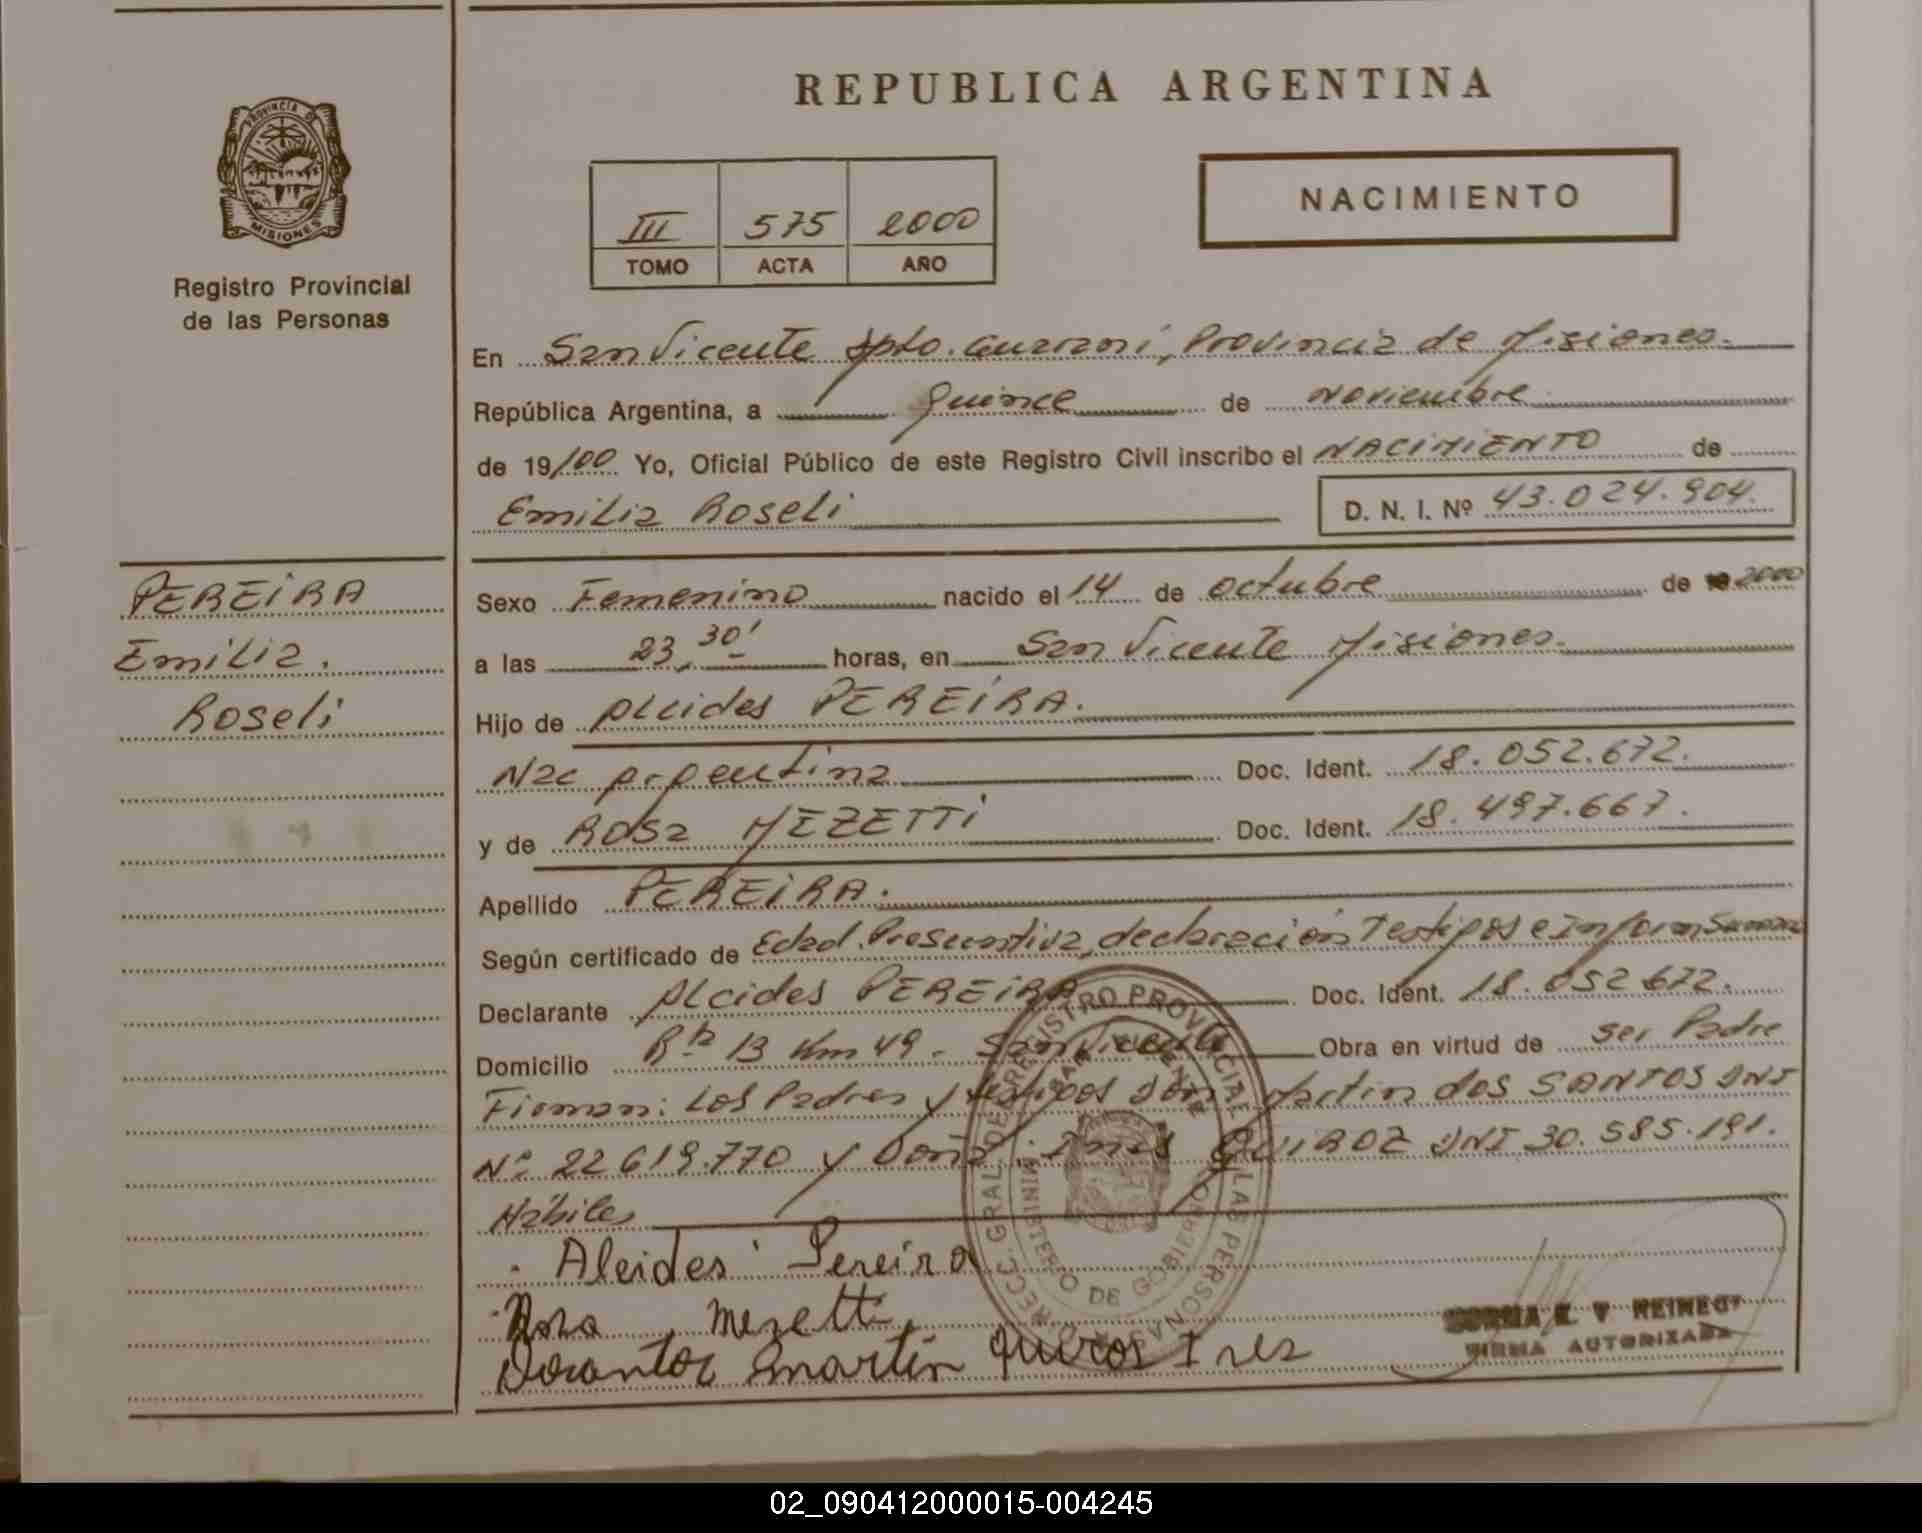 REPUBLICA ARGENTINA
PROVINCIA DE
MISIONES
Registro Provincial
de las Personas
NACIMIENTO
III 575 2000
TOMO ACTA AÑO
En San Vicente Dpto. Guaraní, Provincia de Misiones.
República Argentina, a Quince de Noviembre
de 19/00 Yo, Oficial Público de este Registro Civil inscribo el NACIMIENTO de
Emilia Roseli
D. N. I. Nº 43.024.904.
PEREIRA
Emilia.
Roseli
Sexo Femenino nacido el 14 de octubre de 2000
a las 23,30' horas, en San Vicente Misiones.
Hijo de Alcides PEREIRA.
Nac Argentina Doc. Ident. 18.052.672.
y de ROSA MEZETTI Doc. Ident. 18.497.667.
Apellido PEREIRA.
Según certificado de Edad Presuntiva, declaración Testigos e Inform Sumaria
Declarante Alcides PEREIRA Doc. Ident. 18.052 672.
Domicilio Rta 13 Km 49. San Vicente Obra en virtud de ser Padre
Firman: Los Padres y testigos Don Martin dos SANTOS DNI
Nº 22 619.770 y Doña Ines QUIROZ DNI 30.585.191.
Hábiles
Alcides Pereira
Rosa Mezetti
Dosantos Martin Quiros Ines
FIRMA AUTORIZADA
REGISTRO PROVINCIAL DE LAS PERSONAS
MINISTERIO DE GOBIERNO
SAN VICENTE
02_090412000015-004245